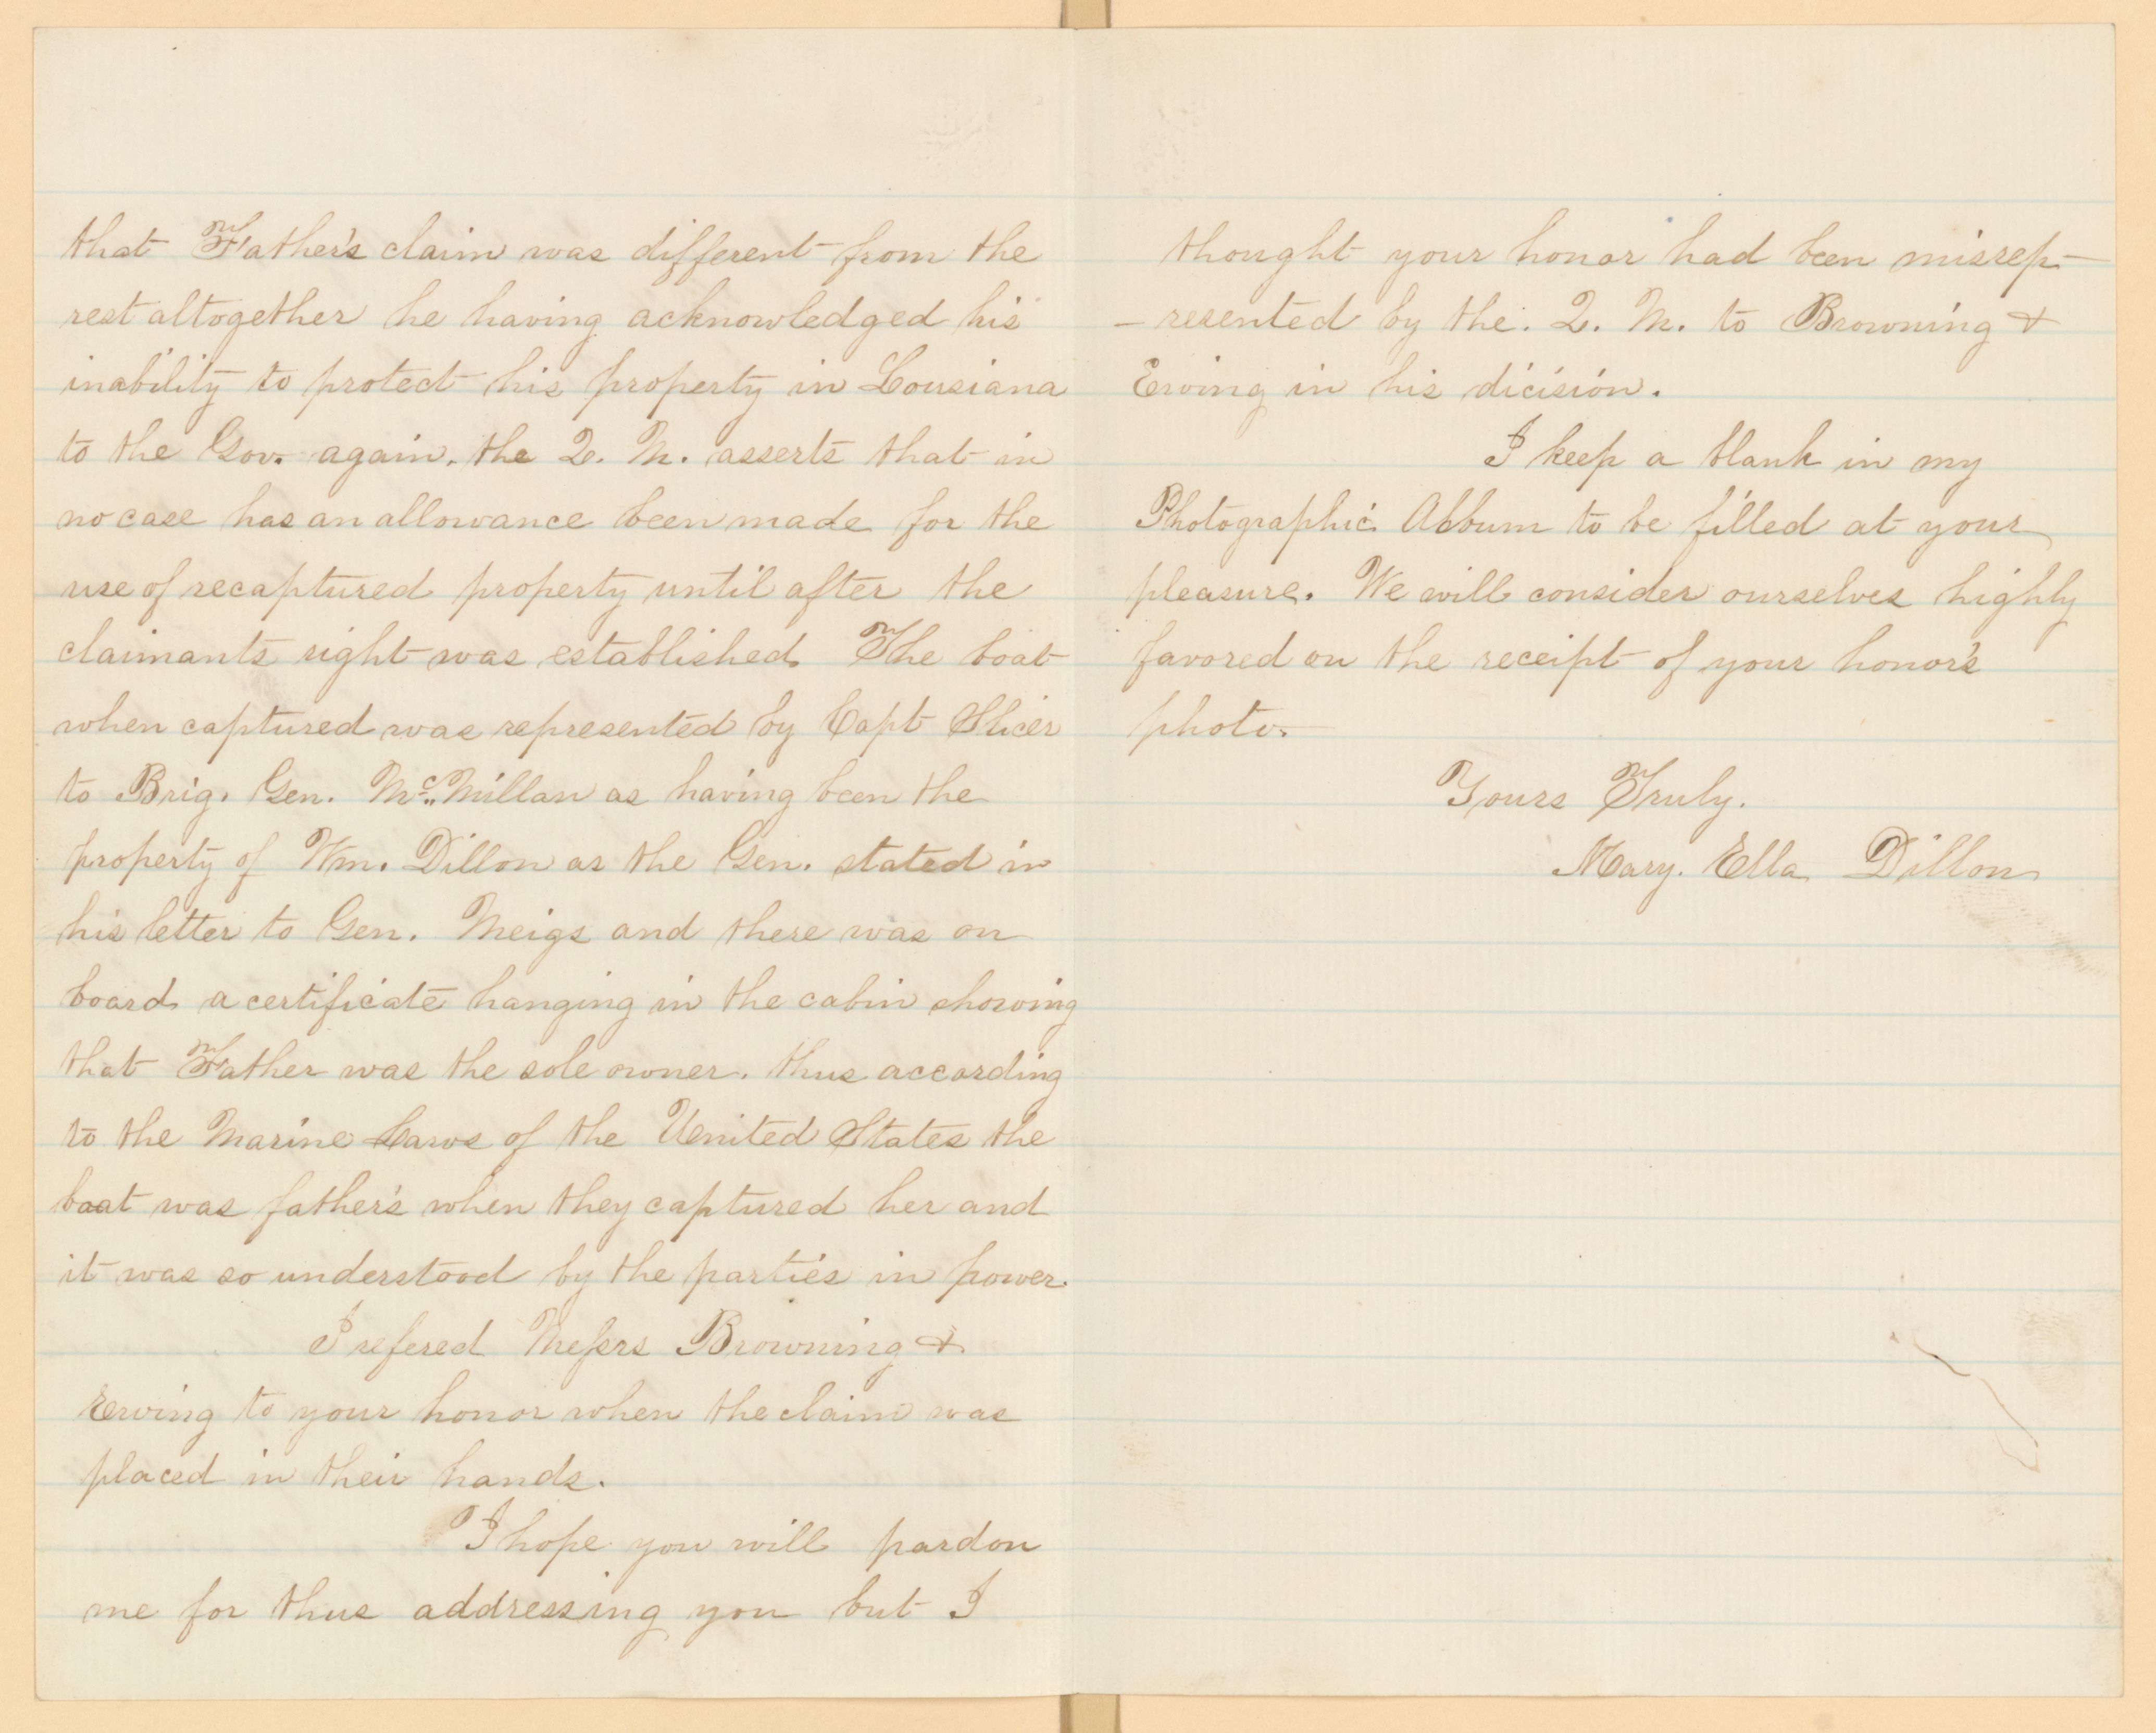 that Father's claim was different from the
rest altogether he having acknowledged his
inability to protect his property in Lousiana
to the Gov. again. the Q. M. asserts that in
no case has an allowance been made for the
use of recaptured property until after the
claimants right was established. The boat
when captured was represented by Capt
to Brig. Gen. McMillan as having been the
property of Wm. Dillon as the Gen. stated in
his letter to Gen. Meigs and there was on
board a certificate hanging in the cabin showing
that Father was the sole owner. thus according
to the Marine Laws of the United States the
boat was father's when they captured her and
it was so understood by the parties in power.
I refered Messrs Browning &
Erving to your honor when the claim was
placed in their hands.
I hope you will pardon
me for thus addressing you but I
thought your honor had been misrep-
-resented by the. Q. M. to Browning &
Erving in his dicision.
I keep a blank in my
Photographic Album to be filled at your
pleasure. We will consider ourselves highly
favored on the receipt of your honor's
photo.
Yours Truly.
Mary. Ella Dillon